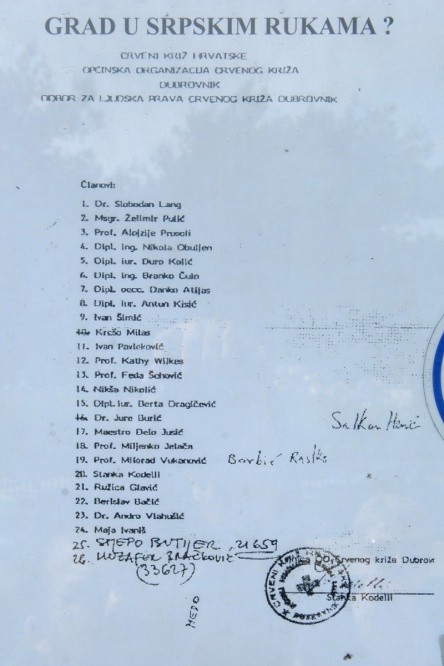 GRAD U SRPSKIM RUKAMA ?
CRVENI KRIŽ HRVATSKE
OPĆINSKA ORGANIZACIJA CRVENOG KRIŽA
DUBROVNIK
ODBOR ZA LJUDSKA PRAVA CRVENOG KRIŽA DUBROVNIK
Članovi:
1. Dr. Slobodan Lang
2. Msgr. Želimir Puljić
3. Prof. Alojzije
4. Dipl. ing. Nikola Obuljen
5. Dipl. iur. Đuro Kolić
6. Dipl. ing. Branko
7. Dipl. oecc. Danko Atijas
8. Dipl. iur. Antun Kisić
9. Ivan Šimić
10. Krešo Milas
11. Ivan
12. Prof. Kathy Wilkes
13. Prof. Feđa Šehović
14. Nikša Nikolić
15. Dipl. iur. Berta Dragičević
16. Dr. Jure Burić
17. Maestro Đelo Jusić
18. Prof. Miljenko Jelača
19. Prof. Milorad Vukanović
20. Stanka Kodelli
21. Ružica Glavić
22. Berislav Bačić
23. Dr. Andro Vlahušić
24. Maja Ivaniš
25. STJEPO BUTIJER, 21659
26. MUZAFER
(33627)
MEDO
Crvenog križa Dubrov
Stanka Kodelli